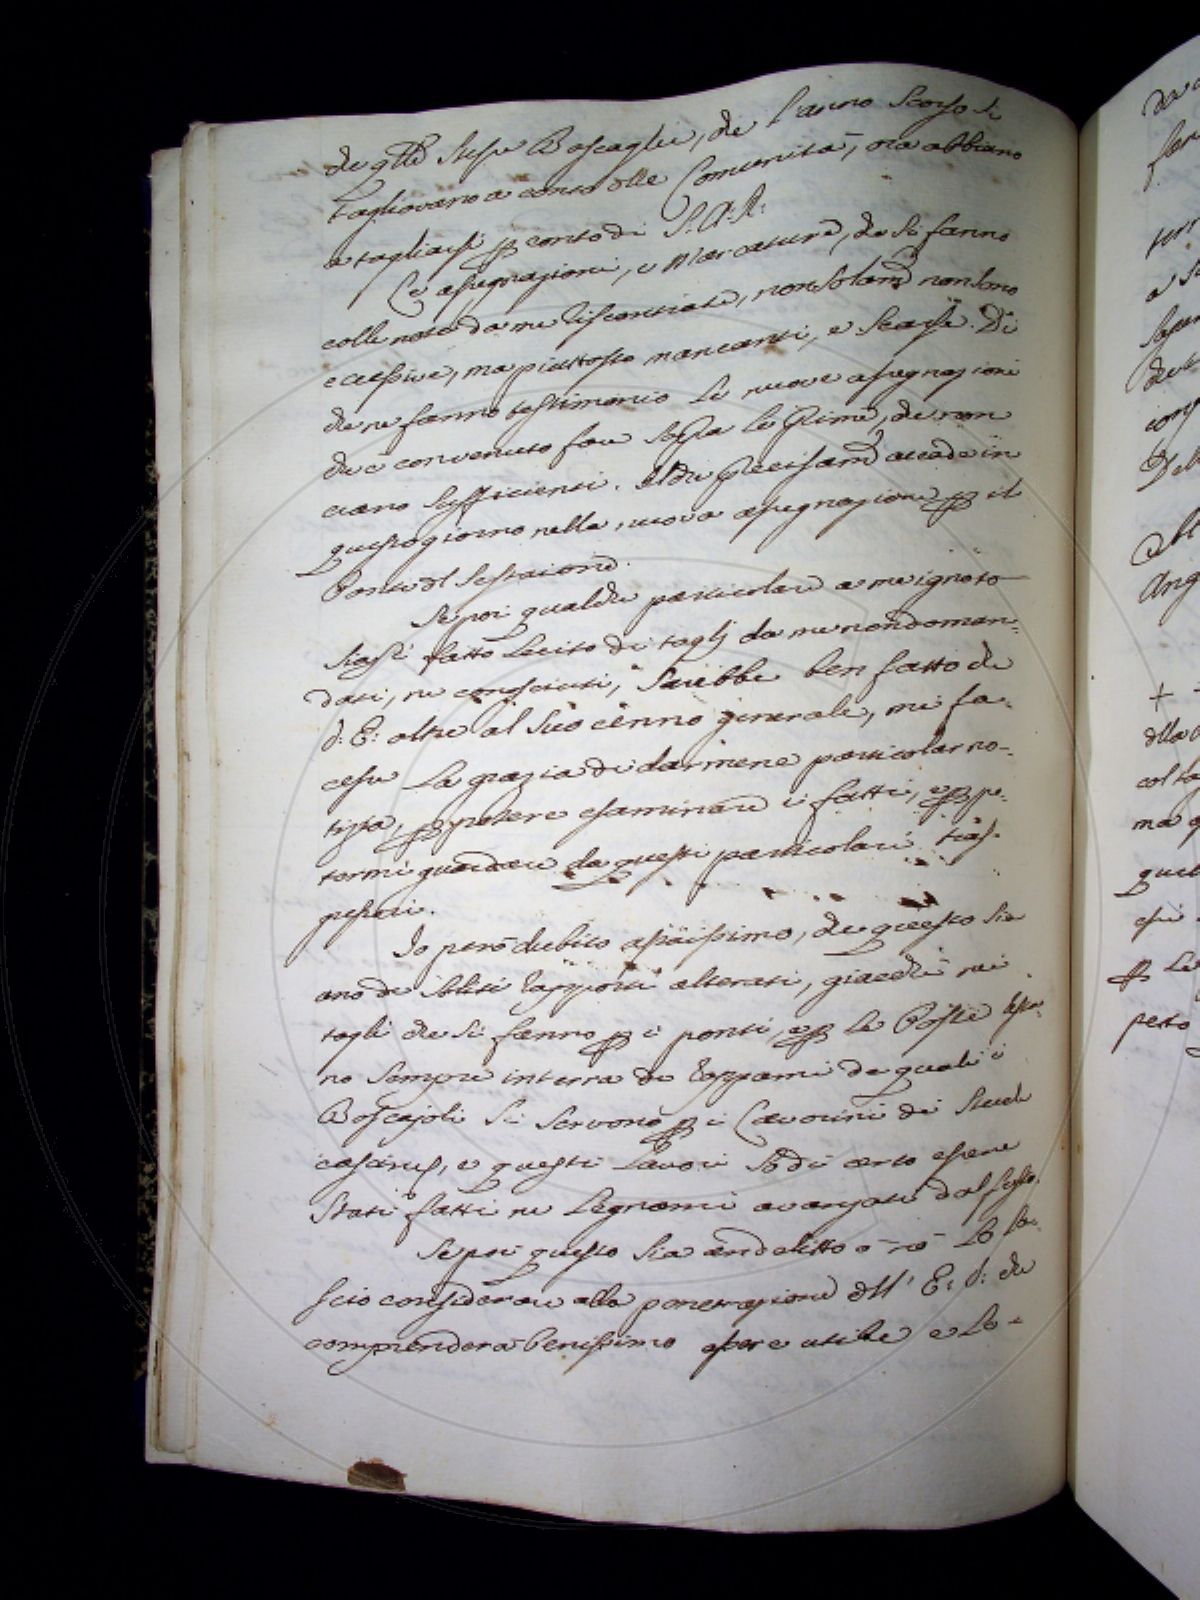 che q.lle stesse Boscaglie, che l'anno scorso si
tagliavano a conto delle Comunità, ora abbiano
a tagliarsi p conto di S.A.R:
Le assegnazioni, e marcature, che si fanno
colle note da me riscontrate, non solam.e non sono
eccessive, ma piuttosto mancanti, e scarse. Di
che ne fanno testimonio le nuove assegnazioni
che è convenuto fare sopra le prime, che non
erano sufficienti. Il che precisam.e accade in
questo giorno nella nuova assegnazione p il
Ponte d'l Sestaione.
Se poi qualche particolare a me ignoto
siasi fatto lecito di tagli da me non doman-
dati, ne conosciuti, sarebbe ben fatto che
V: E: oltre al suo cenno generale, mi fa-
cesse la grazia di darmene particolar no-
tizia, p potere esaminare i fatti, e p po-
termi guardare da questi particolari tras-
gressori.
Io però dubito assaissimo, che questo sia
uno de soliti rapporti alterati, giacchè nei
tagli che si fanno p i ponti, e p le Poste resta-
no sempre in terra de rappami de quali i
Boscajoli si servono p i lavorini dei
e questi lavori si dì certo essere
stati fatti ne legnami avanzati dal
Se poi questo sia un delitto o nò lo la-
scio considerare alla penetrazione dell' E: V: che
comprenderà benissimo essere utile e lo-